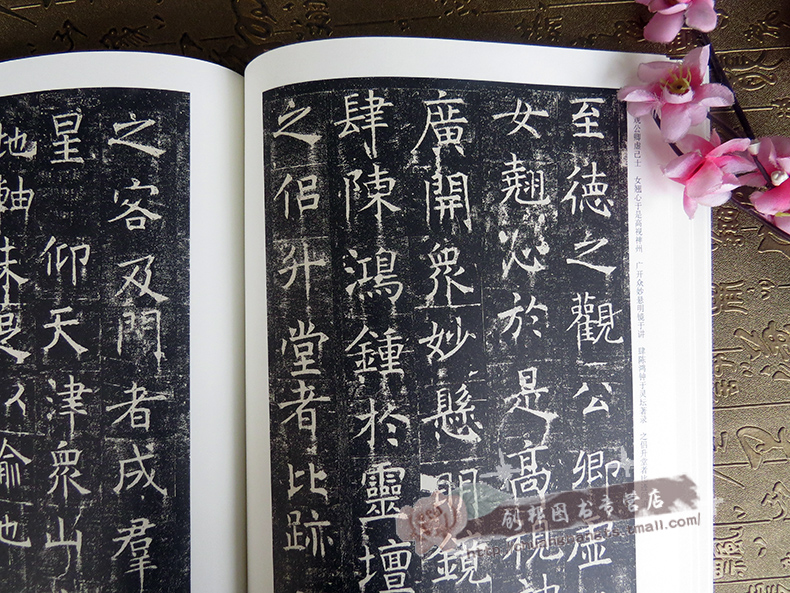 至德之觀公卿虚
女翹心於是髙視神
廣開衆妙懸明鏡
肆陳鴻鍾於靈壇
之侣升堂者比跡
观公卿虚己士 女翘心于是高视神州 广开众妙悬明镜于讲 肆陈鸿钟于灵坛著录 之侣升堂者比
之客及門者成羣
星仰天津衆山
地軸未足以喻也
图书专营店
.tmall.com/